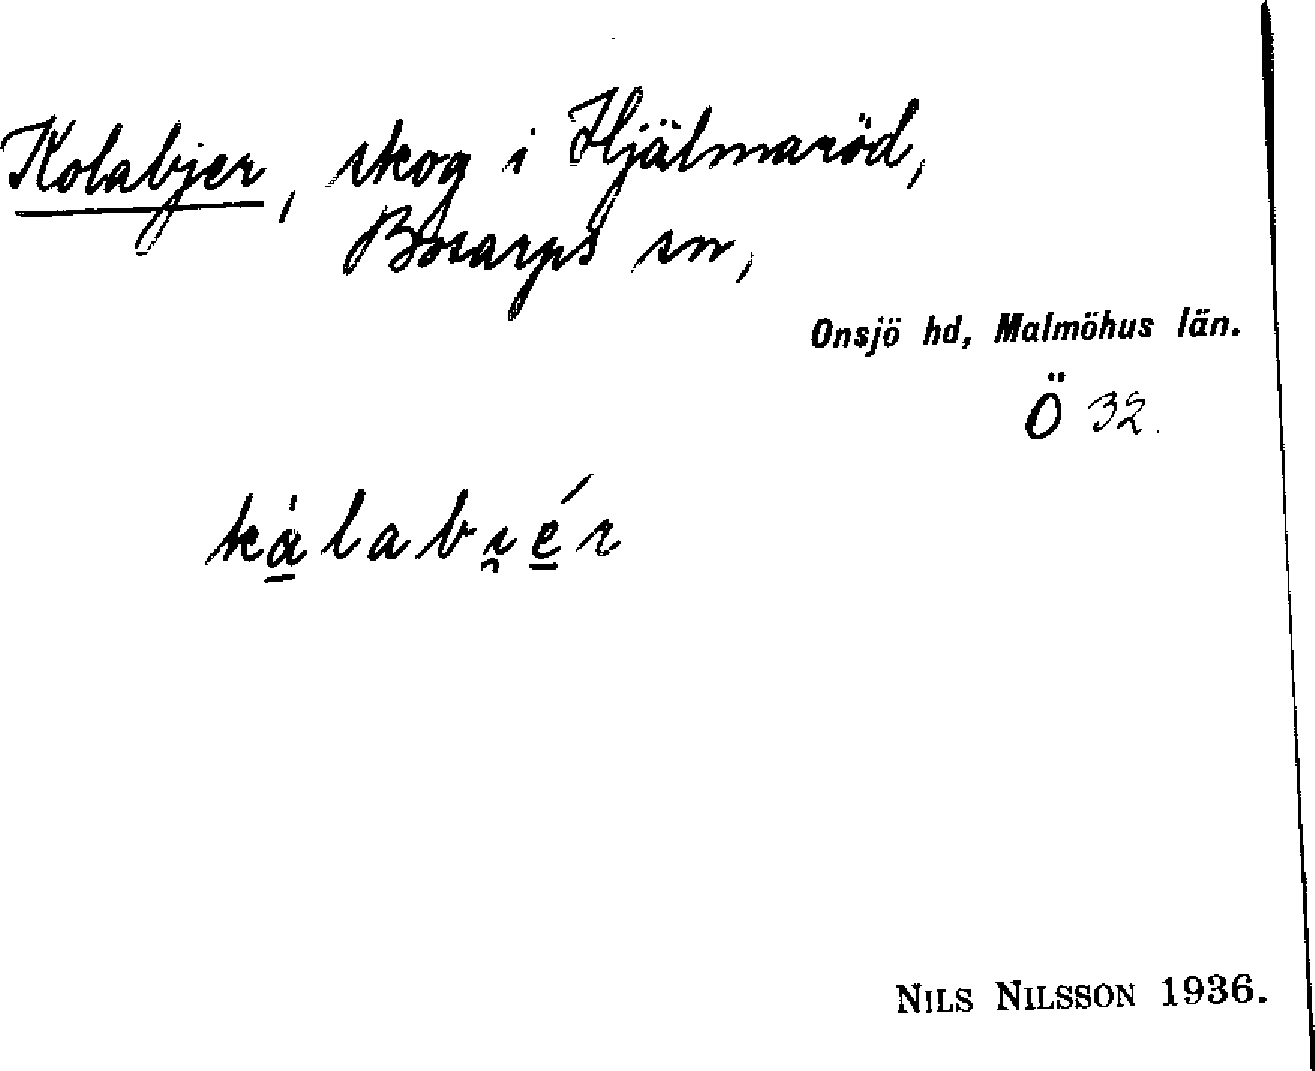 Kolabjer, skog i Hjälmaröd,
Bosarps sn,
Onsjö hd, Malmöhus län.
Ö 32.
NILS NILSSON 1936.